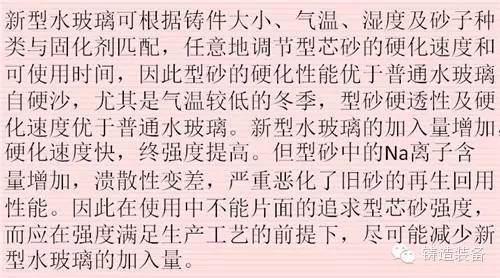 新型水玻璃可根据铸件大小、气温、湿度及砂子种
类与固化剂匹配，任意地调节型芯砂的硬化速度和
可使用时间，因此型砂的硬化性能优于普通水玻璃
自硬沙，尤其是气温较低的冬季，型砂硬透性及硬
化速度优于普通水玻璃。新型水玻璃的加入量增加，
硬化速度快，终强度提高。但型砂中的Na离子含
量增加，溃散性变差，严重恶化了旧砂的再生回用
性能。因此在使用中不能片面的追求型芯砂强度，
而应在强度满足生产工艺的前提下，尽可能减少新
型水玻璃的加入量。
铸造装备